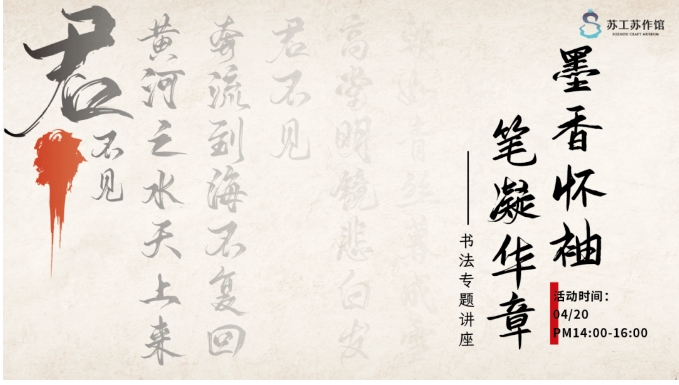 君
不见
黄河之水天上来
奔流到海不复回
君不见
高堂明镜悲白发
朝如青丝暮成雪
苏工苏作馆
SUZHOU CRAFT MUSEUM
墨香怀袖
笔凝华章
——书法专题讲座
活动时间：
04/20
PM14:00-16:00